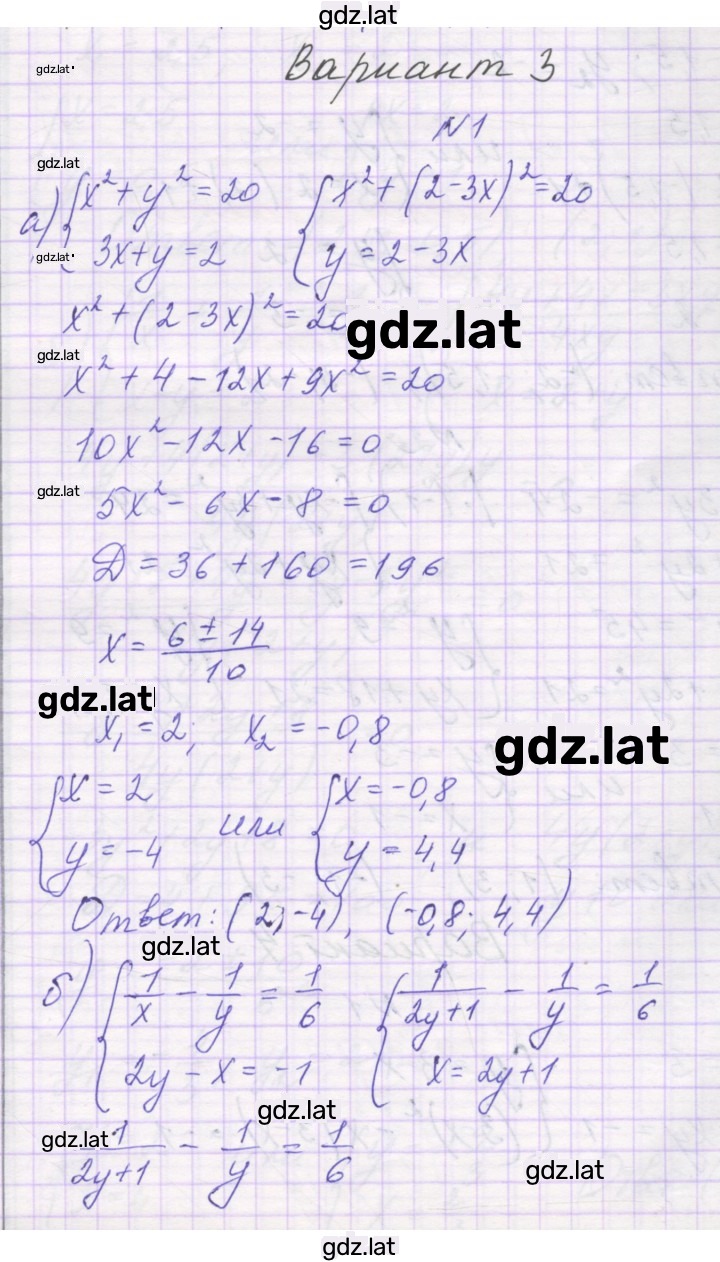 gdz.lat
gdz.lat
Вариант 3
N1
gdz.lat
а) { x² + y² = 20 { x² + (2-3x)² = 20
gdz.lat
3x+y = 2 y = 2 - 3x
x² + (2-3x)² = 20
gdz.lat
gdz.lat
x² + 4 - 12x + 9x² = 20
10x² - 12x - 16 = 0
gdz.lat
5x² - 6x - 8 = 0
D = 36 + 160 = 196
x = (6 ± 14)/10
gdz.lat
x₁ = 2; x₂ = -0,8
gdz.lat
{ x = 2 { x = -0,8
или
y = -4 y = 4,4
Ответ: (2; -4), (-0,8; 4,4)
gdz.lat
б) { 1/x - 1/y = 1/6 { 1/(2y+1) - 1/y = 1/6
2y - x = -1 x = 2y+1
gdz.lat
gdz.lat
1/(2y+1) - 1/y = 1/6
gdz.lat
gdz.lat